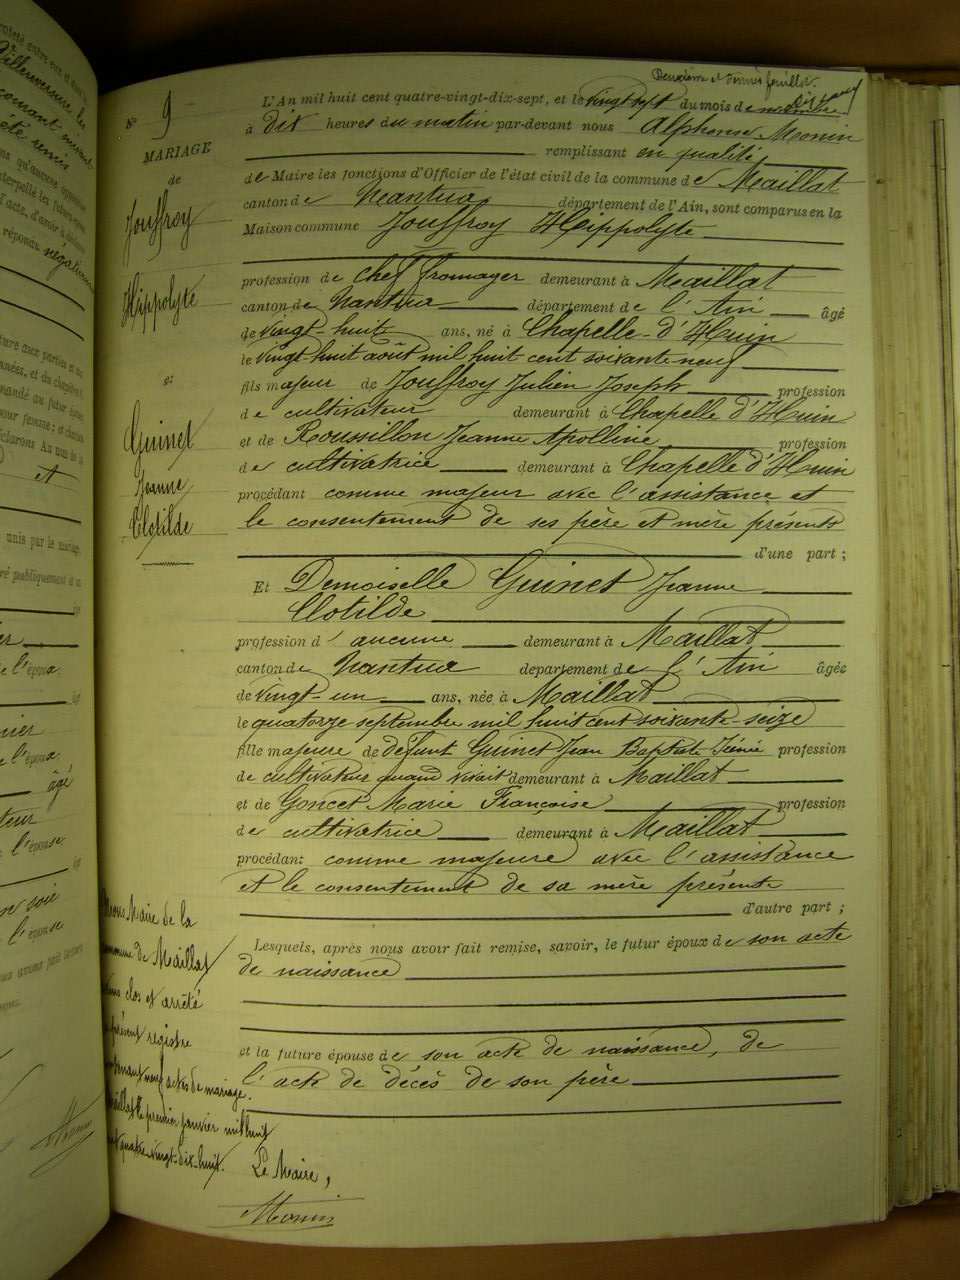 Deuxième et dernier feuillet.
N° 9
MARIAGE
de
Jouffroy
Hippolyte
et
Guinet
Jeanne
Clotilde
L'An mil huit cent quatre-vingt-dix-sept, et le vingt sept du mois de novembre
à dix heures du matin par-devant nous Alphonse Monin
remplissant en qualité
de Maire les fonctions d'Officier de l'état civil de la commune de Maillat
canton de Nantua département de l'Ain, sont comparus en la
Maison commune Jouffroy Hippolyte
profession de chef fromager demeurant à Maillat
canton de Nantua département de l'Ain âgé
de vingt-huit ans, né à Chapelle-d'Huin
le vingt huit août mil huit cent soixante neuf
fils majeur de Jouffroy Julien Joseph profession
de cultivateur demeurant à Chapelle d'Huin
et de Roussillon Jeanne Apolline profession
de cultivatrice demeurant à Chapelle d'Huin
procédant comme majeur avec l'assistance et
le consentement de ses père et mère présents
d'une part ;
Et Demoiselle Guinet Jeanne
Clotilde
profession d'aucune demeurant à Maillat
canton de Nantua département de l'Ain âgée
de vingt-un ans, née à Maillat
le quatorze septembre mil huit cent soixante-seize
fille majeure de défunt Guinet Jean Baptiste profession
de cultivateur quand vivait demeurant à Maillat
et de Goncet Marie Françoise profession
de cultivatrice demeurant à Maillat
procédant comme majeure avec l'assistance
et le consentement de sa mère présente
d'autre part ;
Lesquels, après nous avoir fait remise, savoir, le futur époux de son acte
de naissance
et la future épouse de son acte de naissance, de
l'acte de décès de son père
Nous Maire de la
commune de Maillat
avons clos et arrêté
le présent registre
contenant neuf actes de mariage.
Maillat le premier janvier mil huit
cent quatre-vingt-dix-huit.
Le Maire,
Monin